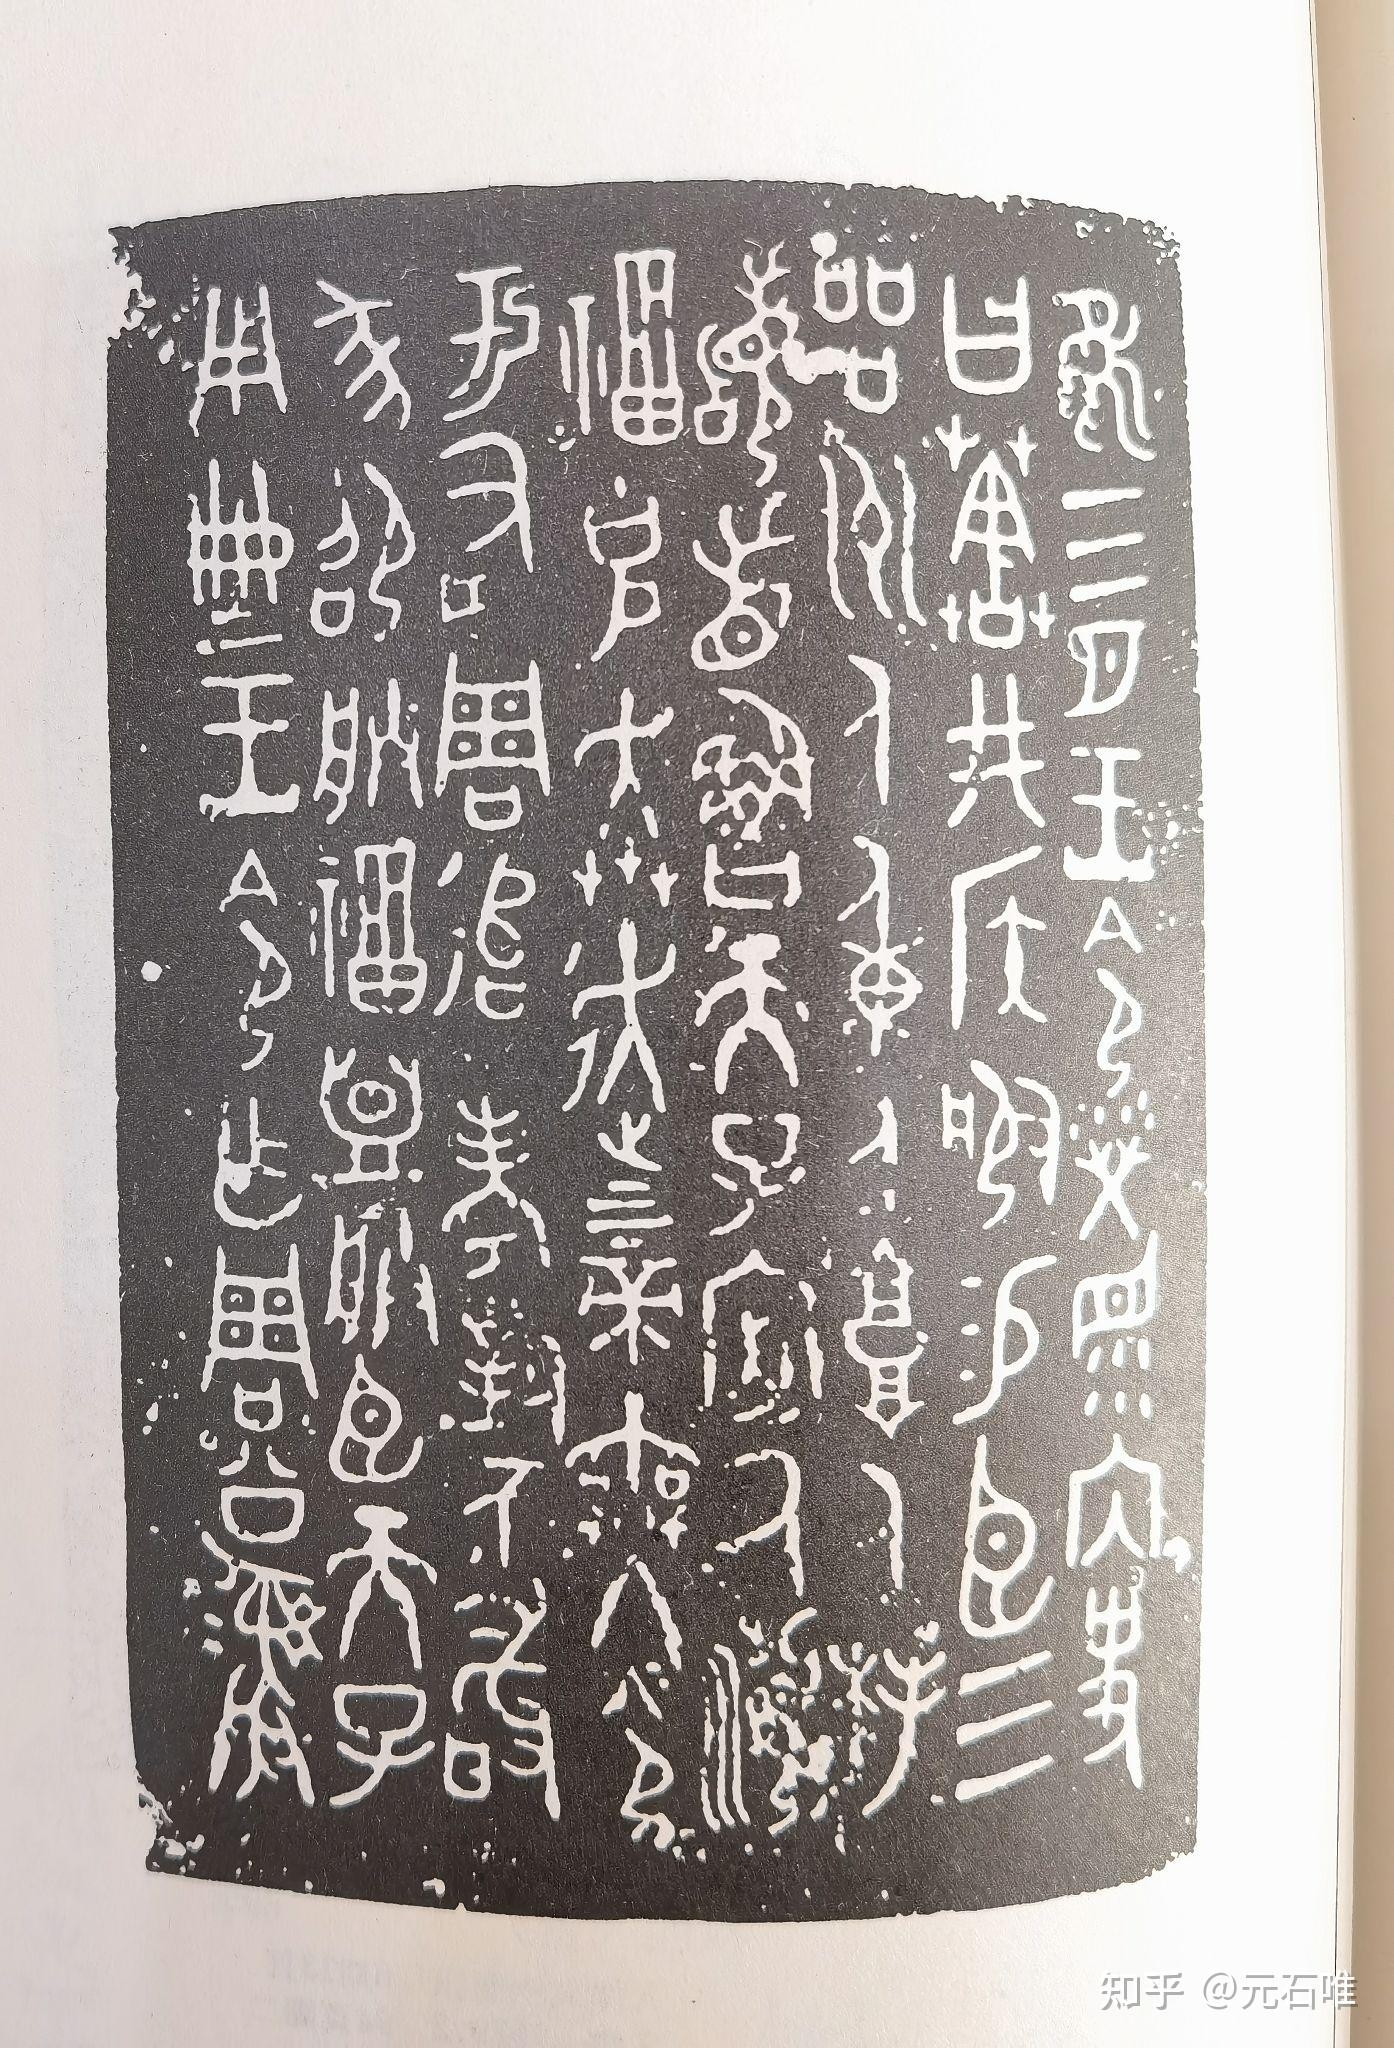 隹三月王令榮眔内史
曰𦵯井侯服易臣三
品州人重人𩫖人拜
𩒨首魯天子𢓊厥瀕
福克奔走上下帝無冬令
于有周追考對不敢
㒸卲朕福盟朕臣天子
用典王令乍周公彝
知乎 @元石唯